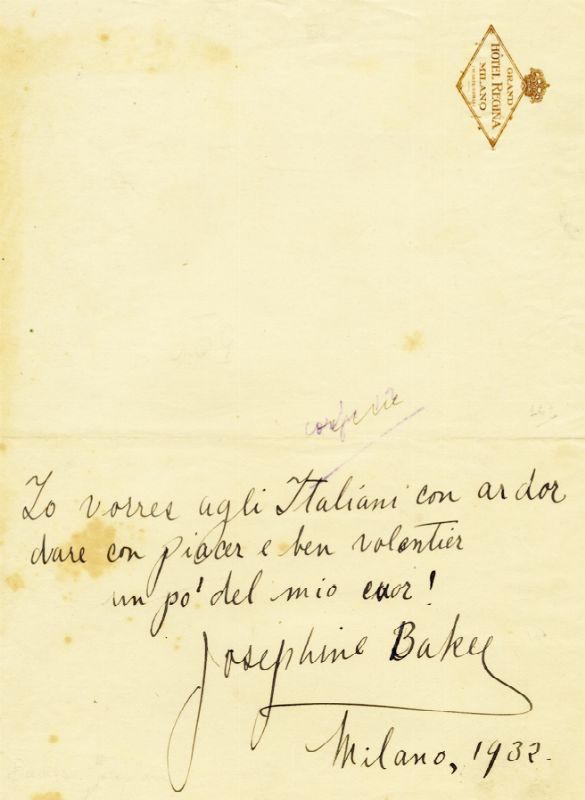 GRAND
HÔTEL REGINA
MILANO
Io vorres agli Italiani con ardor
dare con piacer e ben volentier
un po' del mio cuor!
Josephine Baker
Milano, 1932.